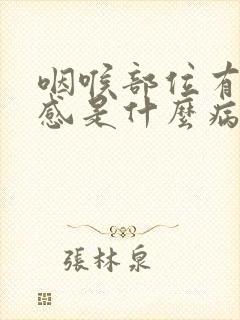 咽喉部位有
感是什麼病
張林泉